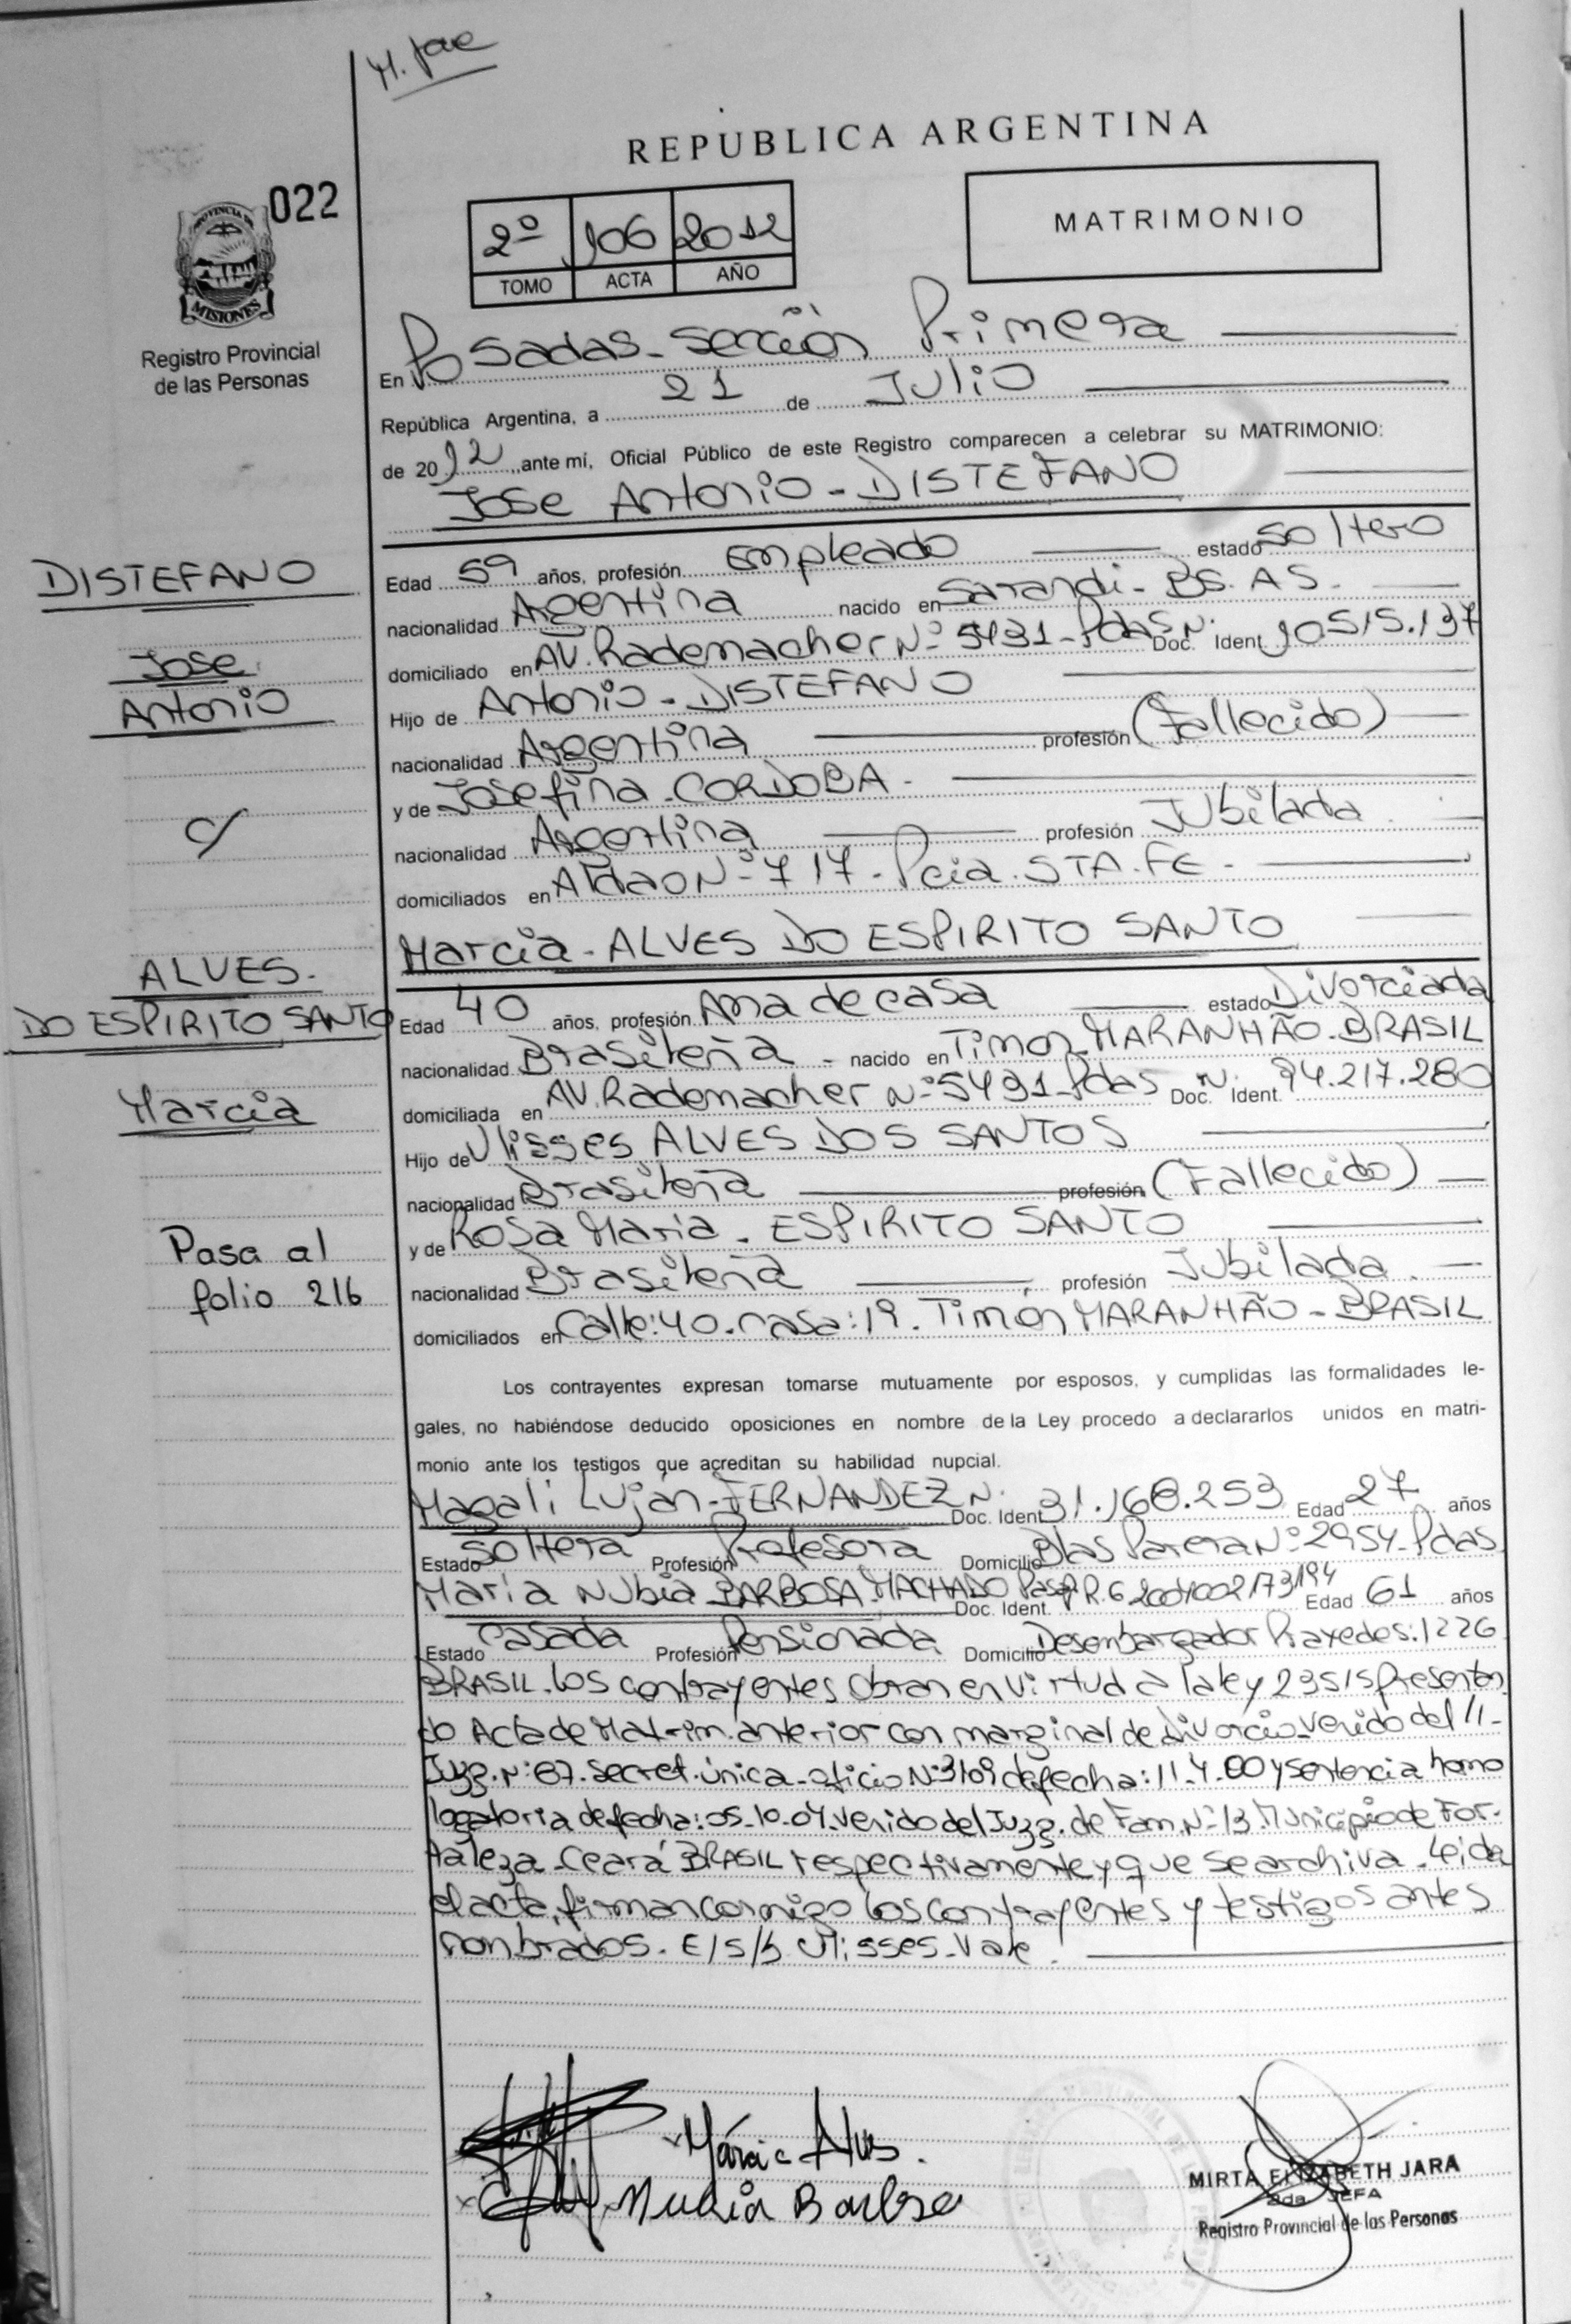 REPUBLICA ARGENTINA
022
PROVINCIA DE
MISIONES
Registro Provincial
de las Personas
2º 106 2012
TOMO ACTA AÑO
MATRIMONIO
En Posadas - Sección Primera
República Argentina, a 21 de Julio
de 2012, ante mí, Oficial Público de este Registro comparecen a celebrar su MATRIMONIO:
Jose Antonio - DISTEFANO
DISTEFANO
Jose
Antonio
c/
ALVES.
DO ESPIRITO SANTO
Marcia
Pasa al
folio 216
Edad 59 años, profesión Empleado estado soltero
nacionalidad Argentina nacido en Sarandi - BS. AS.
domiciliado en AV. Rademacher Nº 5431 - Pdas Doc. N. Ident 10.515.137
Hijo de Antonio - DISTEFANO
nacionalidad Argentina profesión (Fallecido)
y de Josefina - CORDOBA -
nacionalidad Argentina profesión Jubilada
domiciliados en Aldao Nº 717 - Pcia. STA. FE -
Marcia - ALVES DO ESPIRITO SANTO
Edad 40 años, profesión Ama de casa estado Divorciada
nacionalidad Brasileña - nacido en Timon - MARANHÃO - BRASIL
domiciliada en AV. Rademacher Nº 5431 - Pdas Doc. N. Ident. 94.217.280
Hijo de Ulisses ALVES DOS SANTOS
nacionalidad Brasileña profesión (Fallecido)
y de Rosa Maria - ESPIRITO SANTO
nacionalidad Brasileña profesión Jubilada.
domiciliados en Calle: 40 - casa: 19 - Timón MARANHÃO - BRASIL
Los contrayentes expresan tomarse mutuamente por esposos, y cumplidas las formalidades le-
gales, no habiéndose deducido oposiciones en nombre de la Ley procedo a declararlos unidos en matri-
monio ante los testigos que acreditan su habilidad nupcial.
Magali Luján - FERNANDEZ N. Doc. Ident 31.168.253 Edad 27 años
Estado Soltera Profesión Profesora Domicilio Blas Parera Nº 2954 - Pdas
Maria Nubia BARBOSA MACHADO Doc. Ident. Edad 61 años
Estado Casada Profesión Pensionada Domicilio Desembargador Praxedes: 1226
BRASIL. Los contrayentes obran en virtud a la ley 23515 presentan
do Acta de Matrim. anterior con marginal de Divorcio venido del 11-
Juzg. Nº: 67. Secret. única - oficio Nº: 3109 de fecha: 11-4-00 y sentencia homo
logatoria de fecha: 05-10-04 venido del Juzg. de Fam. Nº 13. Municipio de For-
taleza - Ceará BRASIL respectivamente y que se archiva - Leida
el acta, firman conmigo los contrayentes y testigos antes
nombrados. E/S/b Ulisses - Vale.
Márcia Alves.
Nubia Barbosa
MIRTA ELIZABETH JARA
2da JEFA
Registro Provincial de las Personas